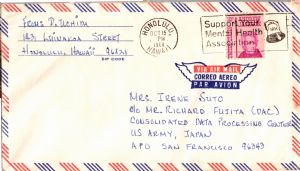 FRANK D. UCHIDA
HONOLULU, HAWAII 96821
ZIP CODE
HONOLULU,
OCT 15
PM
HAWAII
Support Your
Mental Health
Association
VIA AIR MAIL
CORREO AEREO
PAR AVION
MRS. IRENE SUTO
c/o MR. RICHARD FUJITA (DAC)
CONSOLIDATED DATA PROCESSING CENTER
US ARMY, JAPAN
APO SAN FRANCISCO 96343